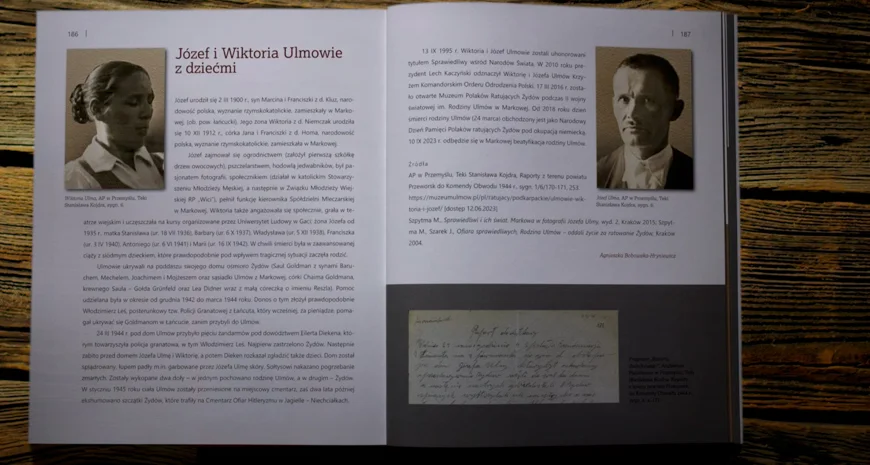 186
Józef i Wiktoria Ulmowie
z dziećmi
Józef urodził się 2 III 1900 r., syn Marcina i Franciszki z d. Kluz, naro-
dowość polska, wyznanie rzymskokatolickie, zamieszkały w Marko-
wej, (ob. pow. łańcucki). Jego żona Wiktoria z d. Niemczak urodziła
się 10 XII 1912 r., córka Jana i Franciszki z d. Homa, narodowość
polska, wyznanie rzymskokatolickie, zamieszkała w Markowej.
Józef zajmował się ogrodnictwem (założył pierwszą szkółkę
drzew owocowych), pszczelarstwem, hodowlą jedwabników, był pa-
sjonatem fotografii, społecznikiem (działał w katolickim Stowarzy-
szeniu Młodzieży Męskiej, a następnie w Związku Młodzieży Wiej-
skiej RP „Wici"), pełnił funkcję kierownika Spółdzielni Mleczarskiej
w Markowej. Wiktoria także angażowała się społecznie, grała w te-
atrze wiejskim i uczęszczała na kursy organizowane przez Uniwersytet Ludowy w Gaci; żona Józefa od
1935 r., matka Stanisławy (ur. 18 VII 1936), Barbary (ur. 6 X 1937), Władysława (ur. 5 XII 1938), Franciszka
(ur. 3 IV 1940), Antoniego (ur. 6 VI 1941) i Marii (ur. 16 IX 1942). W chwili śmierci była w zaawansowanej
ciąży z siódmym dzieckiem, które prawdopodobnie pod wpływem tragicznej sytuacji zaczęła rodzić.
Ulmowie ukrywali na poddaszu swojego domu ośmioro Żydów (Saul Goldman z synami Baru-
chem, Mechelem, Joachimem i Mojżeszem oraz sąsiadki Ulmów z Markowej, córki Chaima Goldmana,
krewnego Saula – Gołda Grünfeld oraz Lea Didner wraz z małą córeczką o imieniu Reszla). Pomoc
udzielana była w okresie od grudnia 1942 do marca 1944 roku. Donos o tym złożył prawdopodobnie
Włodzimierz Leś, posterunkowy tzw. Policji Granatowej z Łańcuta, który wcześniej, za pieniądze, poma-
gał ukrywać się Goldmanom w Łańcucie, zanim przybyli do Ulmów.
24 III 1944 r. pod dom Ulmów przybyło pięciu żandarmów pod dowództwem Eilerta Diekena, któ-
rym towarzyszyła policja granatowa, w tym Włodzimierz Leś. Najpierw zastrzelono Żydów. Następnie
zabito przed domem Józefa Ulmę i Wiktorię, a potem Dieken rozkazał zgładzić także dzieci. Dom został
splądrowany, łupem padły m.in. garbowane przez Ulmę skóry. Sołtysowi nakazano pogrzebanie
zmarłych. Zostały wykopane dwa doły – w jednym pochowano rodzinę Ulmów, a w drugim – Żydów.
W styczniu 1945 roku ciała Ulmów zostały przeniesione na miejscowy cmentarz, zaś dwa lata później
ekshumowano szczątki Żydów, które trafiły na Cmentarz Ofiar Hitleryzmu w Jagielle – Niechciałkach.
Wiktoria Ulma, AP w Przemyślu, Teki
Stanisława Kojdra, sygn. 6
187
13 IX 1995 r. Wiktoria i Józef Ulmowie zostali uhonorowani
tytułem Sprawiedliwy wśród Narodów Świata. W 2010 roku pre-
zydent Lech Kaczyński odznaczył Wiktorię i Józefa Ulmów Krzy-
żem Komandorskim Orderu Odrodzenia Polski. 17 III 2016 r. zosta-
ło otwarte Muzeum Polaków Ratujących Żydów podczas II wojny
światowej im. Rodziny Ulmów w Markowej. Od 2018 roku dzień
śmierci rodziny Ulmów (24 marca) obchodzony jest jako Narodowy
Dzień Pamięci Polaków ratujących Żydów pod okupacją niemiecką.
10 IX 2023 r. odbędzie się w Markowej beatyfikacja rodziny Ulmów.
Źródła
AP w Przemyślu, Teki Stanisława Kojdra, Raporty z terenu powiatu
Przeworsk do Komendy Obwodu 1944 r., sygn. 1/6/170-171, 253
https://muzeumulmow.pl/pl/ratujacy/podkarpackie/ulmowie-wik-
toria-i-jozef/ [dostęp 12.06.2023]
Szpytma M., Sprawiedliwi i ich świat. Markowa w fotografii Józefa Ulmy, wyd. 2, Kraków 2015; Szpyt-
ma M., Szarek J., Ofiara sprawiedliwych. Rodzina Ulmów – oddali życie za ratowanie Żydów, Kraków
2004.
Agnieszka Bobrowska-Hryniewicz
Józef Ulma, AP w Przemyślu, Teki
Stanisława Kojdra, sygn. 6